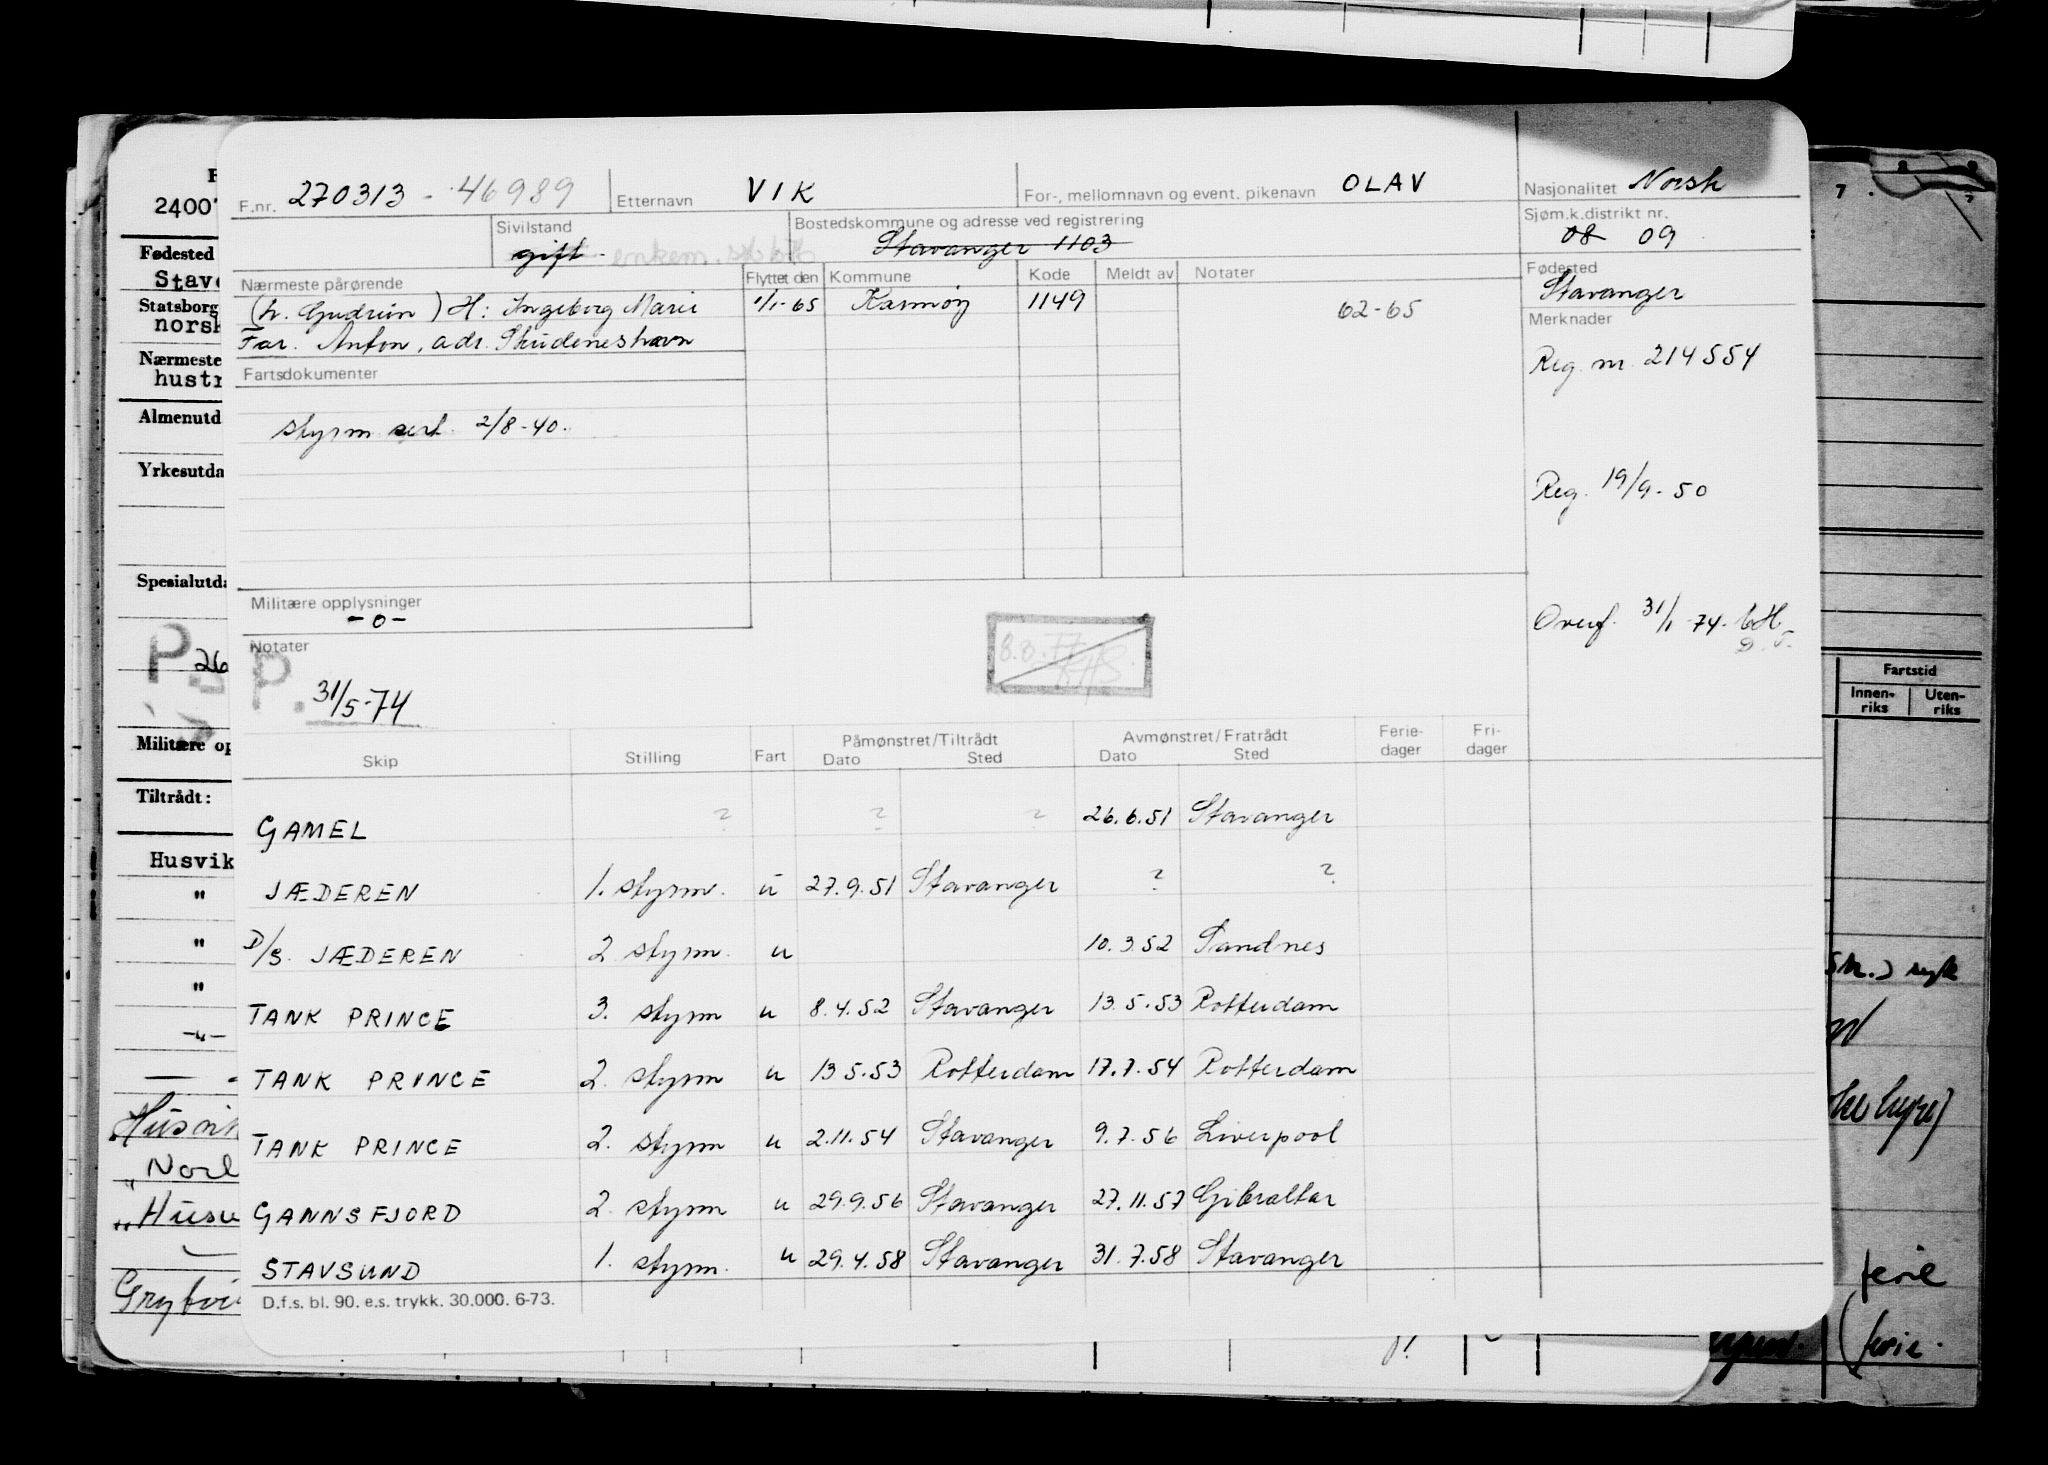 F.nr. 270313 - 46989 Etternavn VIK For-, mellomnavn og event. pikenavn OLAV Nasjonalitet Norsk
Sivilstand gift enkem. Bostedskommune og adresse ved registrering Stavanger 1103 Sjøm.k.distrikt nr. 08 09
Nærmeste pårørende Flyttet den Kommune Kode Meldt av Notater Fødested Stavanger
(h. Gudrun) H: Ingeborg Marie 1/1-65 Karmøy 1149 62-65 Merknader
Far. Anton, adr. Skudeneshavn
Reg. nr. 214554
Fartsdokumenter
styrm sert. 2/8-40.
Reg. 19/9-50
Militære opplysninger
-0-
Overf. 31/1-74-
Notater
P. 31/5-74
8.8.77
Skip Stilling Fart Påmønstret/Tiltrådt Dato Sted Avmønstret/Fratrådt Dato Sted Ferie-dager Fri-dager
GAMEL ? ? ? 26.6.51 Stavanger
JÆDEREN 1. styrm. u 27.9.51 Stavanger ? ?
D/S. JÆDEREN 2 styrm. u 10.3.52 Sandnes
TANK PRINCE 3. styrm u 8.4.52 Stavanger 13.5.53 Rotterdam
TANK PRINCE 2. styrm u 13.5.53 Rotterdam 17.7.54 Rotterdam
TANK PRINCE 2. styrm u 2.11.54 Stavanger 9.7.56 Liverpool
GANNSFJORD 2. styrm u 29.9.56 Stavanger 27.11.57 Gibraltar
STAVSUND 1. styrm. u 29.4.58 Stavanger 31.7.58 Stavanger
D.f.s. bl. 90. e.s. trykk. 30.000. 6-73.
2400
Fødested
Stav
Statsborg
norsk
Nærmeste
hustr
Almenutd
Yrkesutda
Spesialutda
P 26
Militære op
Tiltrådt:
Husvik
"
"
"
-"-
Husvik
Fartstid
Innen-riks Uten-riks
syk
ferie
(ferie.